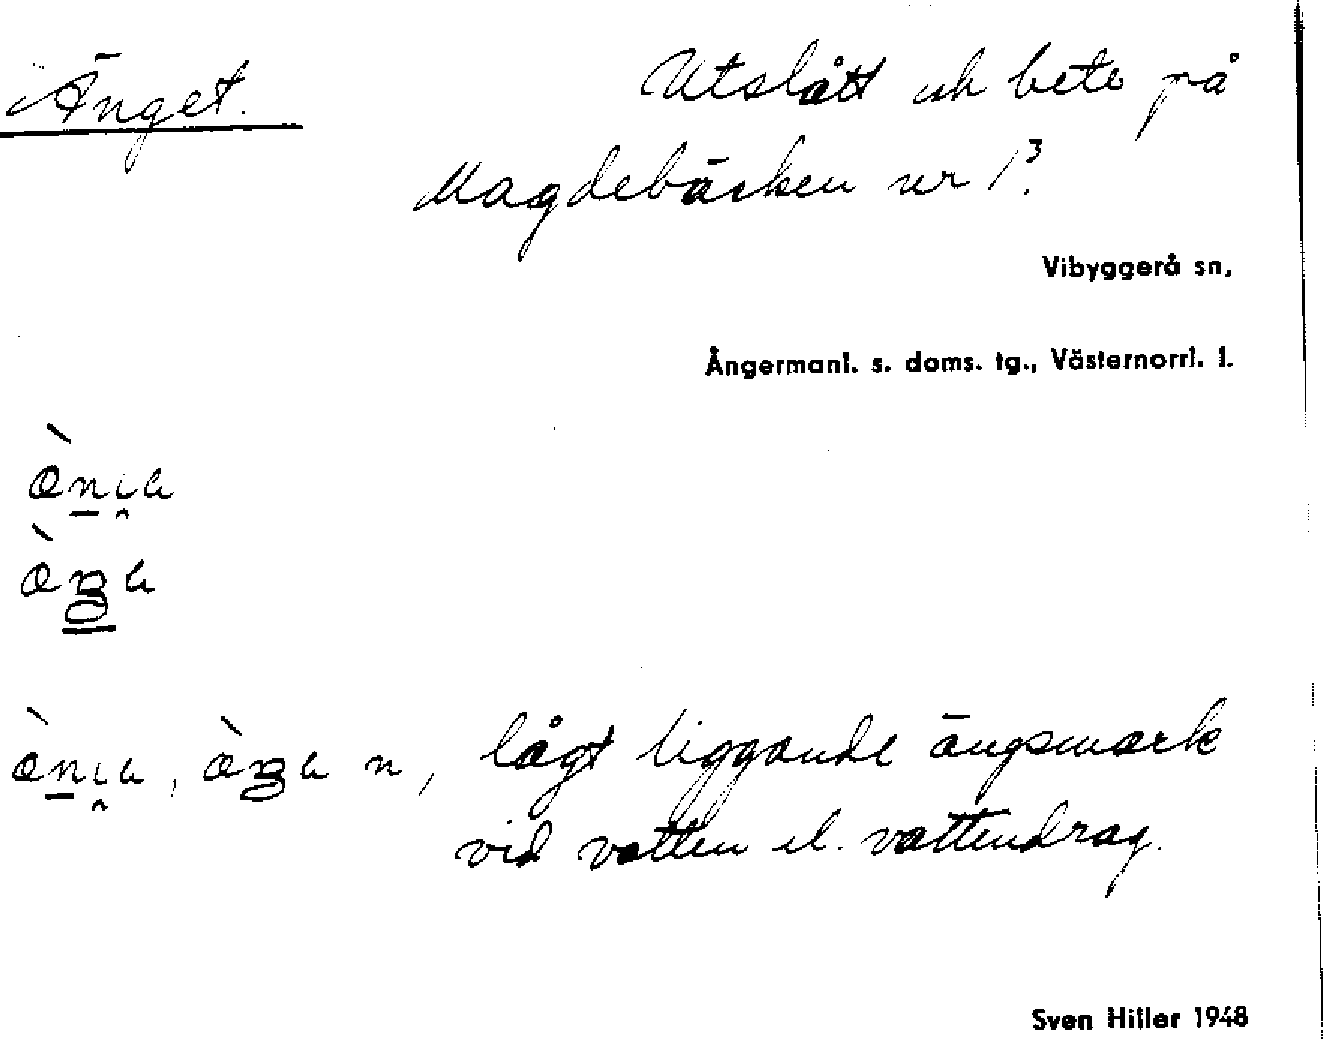 Änget.
Utslått och bete på
Magdebäcken nr 1³.
Vibyggerå sn,
Ångermanl. s. doms. tg., Västernorrl. l.
n, lågt liggande ängsmark
vid vatten el. vattendrag.
Sven Hiller 1948